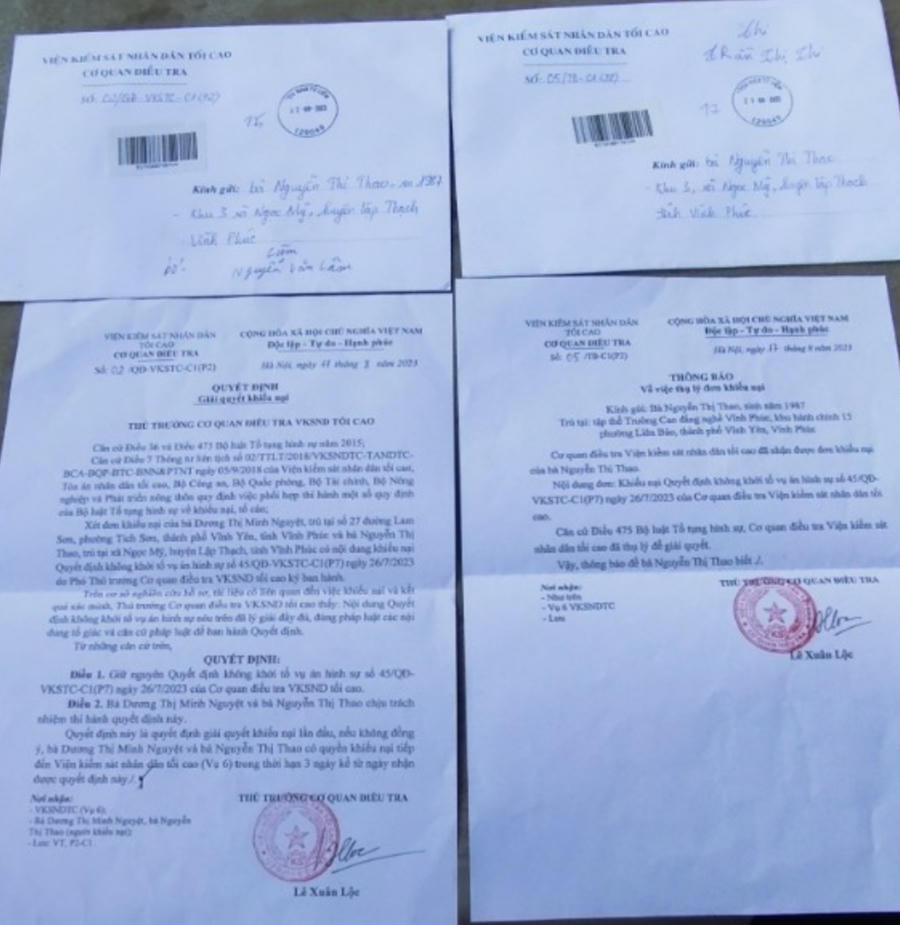 VIỆN KIỂM SÁT NHÂN DÂN TỐI CAO
CƠ QUAN ĐIỀU TRA
Số: 02/QĐ-VKSTC-C1(P2)
Kính gửi: bà Nguyễn Thị Thao, sn 1987
- Khu 3 xã Ngọc Mỹ, huyện Lập Thạch
- Vĩnh Phúc
Nguyễn Văn Lâm
VIỆN KIỂM SÁT NHÂN DÂN TỐI CAO
CƠ QUAN ĐIỀU TRA
Số: 05/TB-C1(P2)
Trần Thị
Kính gửi: bà Nguyễn Thị Thao
- Khu 3, xã Ngọc Mỹ, huyện Lập Thạch
tỉnh Vĩnh Phúc
VIỆN KIỂM SÁT NHÂN DÂN
TỐI CAO
CƠ QUAN ĐIỀU TRA
Số: 02 /QĐ-VKSTC-C1(P2)
CỘNG HÒA XÃ HỘI CHỦ NGHĨA VIỆT NAM
Độc lập - Tự do - Hạnh phúc
Hà Nội, ngày tháng 8 năm 2023
QUYẾT ĐỊNH
Giải quyết khiếu nại
THỦ TRƯỞNG CƠ QUAN ĐIỀU TRA VKSND TỐI CAO
Căn cứ Điều 36 và Điều 475 Bộ luật Tố tụng hình sự năm 2015;
Căn cứ Điều 7 Thông tư liên tịch số 02/TTLT/2018/VKSNDTC-TANDTC-
BCA-BQP-BTC-BNN&PTNT ngày 05/9/2018 của Viện kiểm sát nhân dân tối cao,
Tòa án nhân dân tối cao, Bộ Công an, Bộ Quốc phòng, Bộ Tài chính, Bộ Nông
nghiệp và Phát triển nông thôn quy định việc phối hợp thi hành một số quy định
của Bộ luật Tố tụng hình sự về khiếu nại, tố cáo;
Xét đơn khiếu nại của bà Dương Thị Minh Nguyệt, trú tại số 27 đường Lam
Sơn, phường Tích Sơn, thành phố Vĩnh Yên, tỉnh Vĩnh Phúc và bà Nguyễn Thị
Thao, trú tại xã Ngọc Mỹ, huyện Lập Thạch, tỉnh Vĩnh Phúc có nội dung khiếu nại
Quyết định không khởi tố vụ án hình sự số 45/QĐ-VKSTC-C1(P7) ngày 26/7/2023
do Phó Thủ trưởng Cơ quan điều tra VKSND tối cao ký ban hành.
Trên cơ sở nghiên cứu hồ sơ, tài liệu có liên quan đến việc khiếu nại và kết
quả xác minh, Thủ trưởng Cơ quan điều tra VKSND tối cao thấy: Nội dung Quyết
định không khởi tố vụ án hình sự nêu trên đã lý giải đầy đủ, đúng pháp luật các nội
dung tố giác và căn cứ pháp luật để ban hành Quyết định.
Từ những căn cứ trên,
QUYẾT ĐỊNH:
Điều 1. Giữ nguyên Quyết định không khởi tố vụ án hình sự số 45/QĐ-
VKSTC-C1(P7) ngày 26/7/2023 của Cơ quan điều tra VKSND tối cao.
Điều 2. Bà Dương Thị Minh Nguyệt và bà Nguyễn Thị Thao chịu trách
nhiệm thi hành quyết định này.
Quyết định này là quyết định giải quyết khiếu nại lần đầu, nếu không đồng
ý, bà Dương Thị Minh Nguyệt và bà Nguyễn Thị Thao có quyền khiếu nại tiếp
đến Viện kiểm sát nhân dân tối cao (Vụ 6) trong thời hạn 3 ngày kể từ ngày nhận
được quyết định này./.
Nơi nhận:
- VKSNDTC (Vụ 6);
- Bà Dương Thị Minh Nguyệt, bà Nguyễn
Thị Thao (người khiếu nại);
- Lưu: VT, P2-C1.
THỦ TRƯỞNG CƠ QUAN ĐIỀU TRA
Lê Xuân Lộc
VIỆN KIỂM SÁT NHÂN DÂN
TỐI CAO
CƠ QUAN ĐIỀU TRA
Số: 05 /TB-C1(P2)
CỘNG HÒA XÃ HỘI CHỦ NGHĨA VIỆT NAM
Độc lập - Tự do - Hạnh phúc
Hà Nội, ngày 17 tháng 8 năm 2023
THÔNG BÁO
Về việc thụ lý đơn khiếu nại
Kính gửi: Bà Nguyễn Thị Thao, sinh năm 1987
Trú tại: tập thể Trường Cao đẳng nghề Vĩnh Phúc, khu hành chính 15
phường Liên Bảo, thành phố Vĩnh Yên, Vĩnh Phúc
Cơ quan điều tra Viện kiểm sát nhân dân tối cao đã nhận được đơn khiếu nại
của bà Nguyễn Thị Thao.
Nội dung đơn: Khiếu nại Quyết định không khởi tố vụ án hình sự số 45/QĐ-
VKSTC-C1(P7) ngày 26/7/2023 của Cơ quan điều tra Viện kiểm sát nhân dân tối
cao.
Căn cứ Điều 475 Bộ luật Tố tụng hình sự, Cơ quan điều tra Viện kiểm sát
nhân dân tối cao đã thụ lý để giải quyết.
Vậy, thông báo để bà Nguyễn Thị Thao biết ./.
Nơi nhận:
- Như trên
- Vụ 6 VKSNDTC
- Lưu
THỦ TRƯỞNG CƠ QUAN ĐIỀU TRA
Lê Xuân Lộc